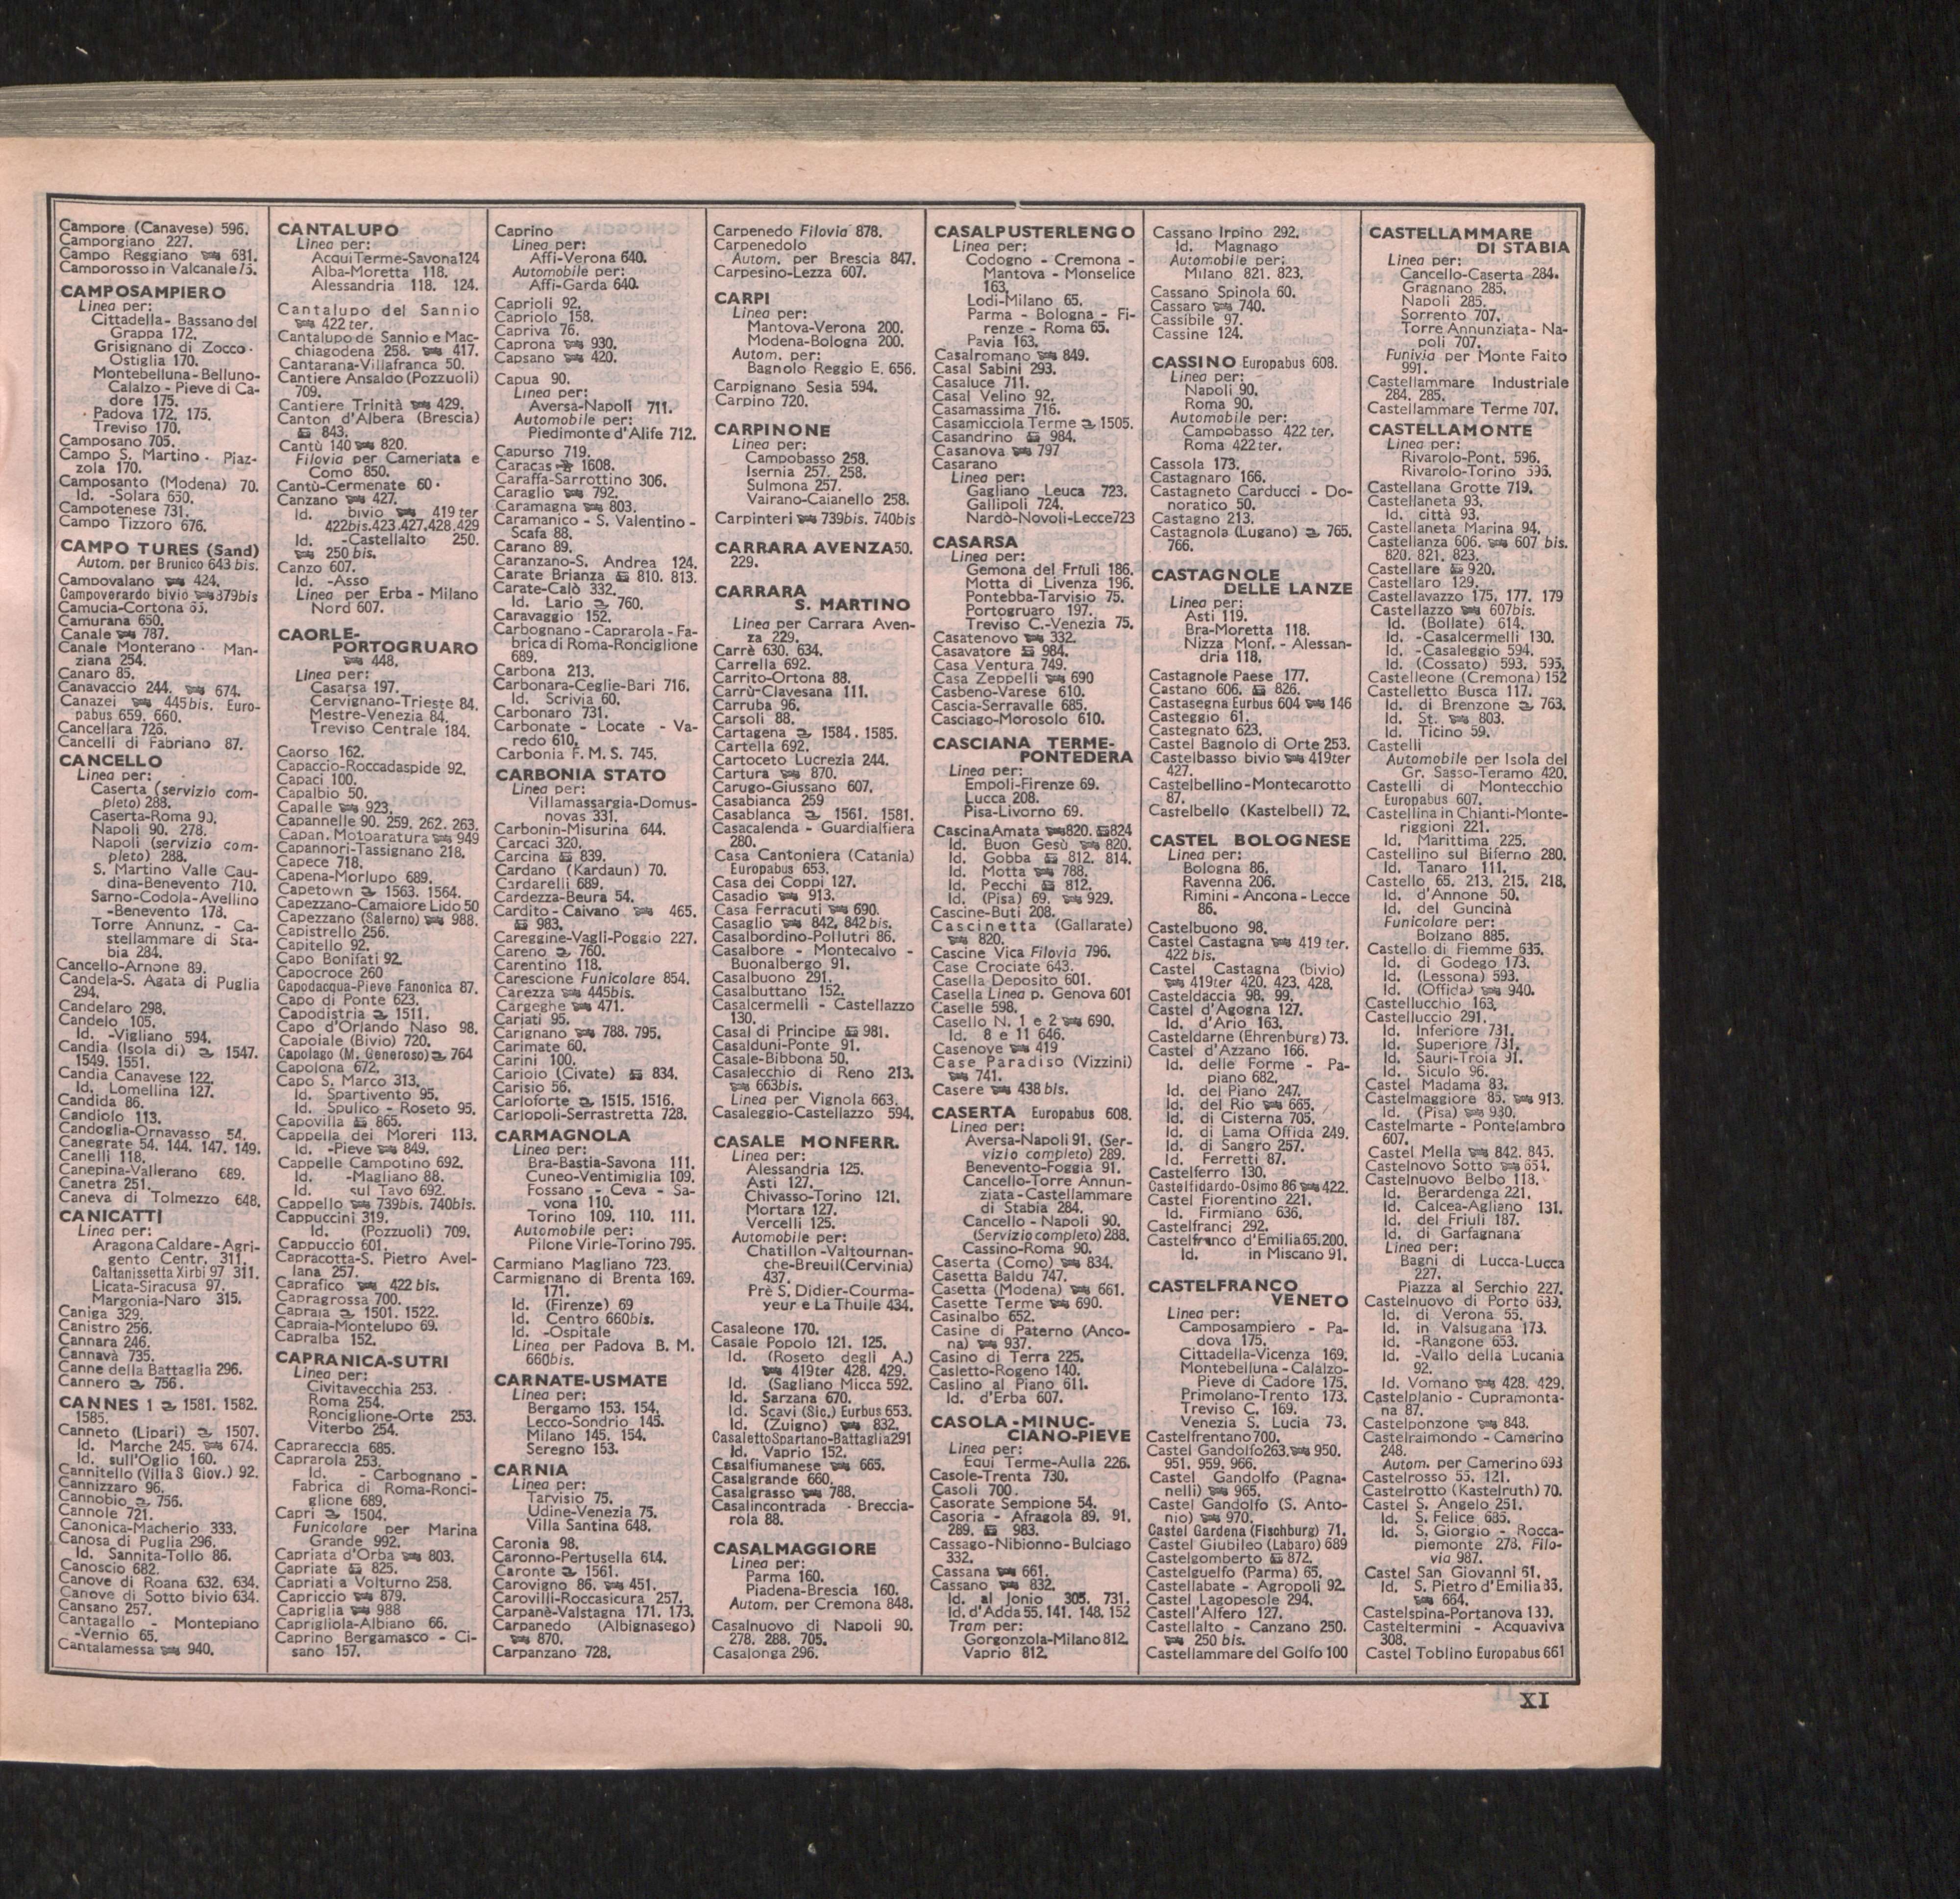 Campore (Canavese) 596.
Camporgiano 227.
Campo Reggiano 681.
Camporosso in Valcanale 75.
CAMPOSAMPIERO
Linea per:
Cittadella - Bassano del
Grappa 172.
Grisignano di Zocco -
Ostiglia 170.
Montebelluna - Belluno-
Calalzo - Pieve di Ca-
dore 175.
Padova 172, 175.
Treviso 170.
Camposano 705.
Campo S. Martino - Piaz-
zola 170.
Camposanto (Modena) 70.
Id. -Solara 650.
Campotenese 731.
Campo Tizzoro 676.
CAMPO TURES (Sand)
Autom. per Brunico 643 bis.
Campovalano 424.
Campoverardo bivio 879bis
Camucia-Cortona 65.
Camurana 650.
Canale 787.
Canale Monterano - Man-
ziana 254.
Canaro 85.
Canavaccio 244. 674.
Canazei 445bis. Euro-
pabus 659, 660.
Cancellara 726.
Cancelli di Fabriano 87.
CANCELLO
Linea per:
Caserta (servizio com-
pleto) 288.
Caserta-Roma 90.
Napoli 90. 278.
Napoli (servizio com-
pleto) 288.
S. Martino Valle Cau-
dina-Benevento 710.
Sarno-Codola-Avellino
-Benevento 178.
Torre Annunz. - Ca-
stellammare di Sta-
bia 284.
Cancello-Arnone 89.
Candela-S. Agata di Puglia
294.
Candelaro 298.
Candelo 105.
Id. -Vigliano 594.
Candia (Isola di) 1547.
1549. 1551.
Candia Canavese 122.
Id. Lomellina 127.
Candida 86.
Candiolo 113.
Candoglia-Ornavasso 54.
Canegrate 54. 144. 147. 149.
Canelli 118.
Canepina-Vallerano 689.
Canetra 251.
Caneva di Tolmezzo 648.
CANICATTI
Linea per:
Aragona Caldare - Agri-
gento Centr. 311.
Caltanissetta Xirbi 97 311.
Licata-Siracusa 97.
Margonia-Naro 315.
Caniga 329.
Canistro 256.
Cannara 246.
Cannavà 735.
Canne della Battaglia 296.
Cannero 756.
CANNES 1 1581. 1582.
1585.
Canneto (Lipari) 1507.
Id. Marche 245. 674.
Id. sull'Oglio 160.
Cannitello (Villa S Giov.) 92.
Cannizzaro 96.
Cannobio 756.
Cannole 721.
Canonica-Macherio 333.
Canosa di Puglia 296.
Id. Sannita-Tollo 86.
Canoscio 682.
Canove di Roana 632, 634.
Canove di Sotto bivio 634.
Cansano 257.
Cantagallo - Montepiano
-Vernio 65.
Cantalamessa 940.
CANTALUPO
Linea per:
Acqui Terme-Savona 124
Alba-Moretta 118.
Alessandria 118. 124.
Cantalupo del Sannio
422 ter.
Cantalupo de Sannio e Mac-
chiagodena 258. 417.
Cantarana-Villafranca 50.
Cantiere Ansaldo (Pozzuoli)
709.
Cantiere Trinità 429.
Canton d'Albera (Brescia)
843.
Cantù 140 820.
Filovia per Cameriata e
Como 850.
Cantù-Cermenate 60.
Canzano 427.
Id. bivio 419 ter
422bis.423.427.428.429
Id. -Castellalto 250.
250 bis.
Canzo 607.
Id. -Asso
Linea per Erba - Milano
Nord 607.
CAORLE-
PORTOGRUARO
448.
Linea per:
Casarsa 197.
Cervignano-Trieste 84.
Mestre-Venezia 84.
Treviso Centrale 184.
Caorso 162.
Capaccio-Roccadaspide 92.
Capaci 100.
Capalbio 50.
Capalle 923.
Capannelle 90. 259. 262. 263.
Capan. Motoaratura 949
Capannori-Tassignano 218.
Capece 718.
Capena-Morlupo 689.
Capetown 1563. 1564.
Capezzano-Camaiore Lido 50
Capezzano (Salerno) 988.
Capistrello 256.
Capitello 92.
Capo Bonifati 92.
Capocroce 260
Capodacqua-Pieve Fanonica 87.
Capo di Ponte 623.
Capodistria 1511.
Capo d'Orlando Naso 98.
Capoiale (Bivio) 720.
Capolago (M. Generoso) 764
Capolona 672.
Capo S. Marco 313.
Id. Spartivento 95.
Id. Spulico - Roseto 95.
Capovilla 865.
Cappella dei Moreri 113.
Id. -Pieve 849.
Cappelle Campotino 692.
Id. -Magliano 88.
Id. sul Tavo 692.
Cappello 739bis. 740bis.
Cappuccini 319.
Id. (Pozzuoli) 709.
Cappuccio 601.
Capracotta-S. Pietro Avel-
lana 257.
Caprafico 422 bis.
Capragrossa 700.
Capraia 1501. 1522.
Capraia-Montelupo 69.
Capralba 152.
CAPRANICA-SUTRI
Linea per:
Civitavecchia 253.
Roma 254.
Ronciglione-Orte 253.
Viterbo 254.
Caprareccia 685.
Caprarola 253.
Id. - Carbognano -
Fabrica di Roma-Ronci-
glione 689.
Capri 1504.
Funicolare per Marina
Grande 992.
Capriata d'Orba 803.
Capriate 825.
Capriati a Volturno 258.
Capriccio 879.
Capriglia 988
Caprigliola-Albiano 66.
Caprino Bergamasco - Ci-
sano 157.
Caprino
Linea per:
Affi-Verona 640.
Automobile per:
Affi-Garda 640.
Caprioli 92.
Capriolo 158.
Capriva 76.
Caprona 930.
Capsano 420.
Capua 90.
Linea per:
Aversa-Napoli 711.
Automobile per:
Piedimonte d'Alife 712.
Capurso 719.
Caracas 1608.
Caraffa-Sarrottino 306.
Caraglio 792.
Caramagna 803.
Caramanico - S. Valentino -
Scafa 88.
Carano 89.
Caranzano-S. Andrea 124.
Carate Brianza 810. 813.
Carate-Calò 332.
Id. Lario 760.
Caravaggio 152.
Carbognano - Caprarola - Fa-
brica di Roma-Ronciglione
689.
Carbona 213.
Carbonara-Ceglie-Bari 716.
Id. Scrivia 60.
Carbonaro 731.
Carbonate - Locate - Va-
redo 610.
Carbonia F. M. S. 745.
CARBONIA STATO
Linea per:
Villamassargia-Domus-
novas 331.
Carbonin-Misurina 644.
Carcaci 320.
Carcina 839.
Cardano (Kardaun) 70.
Cardarelli 689.
Cardezza-Beura 54.
Cardito - Caivano 465.
983.
Careggine-Vagli-Poggio 227.
Careno 760.
Carentino 118.
Carescione Funicolare 854.
Carezza 445bis.
Cargeghe 471.
Cariati 95.
Carignano 788. 795.
Carimate 60.
Carini 100.
Carioio (Civate) 834.
Carisio 56.
Carloforte 1515. 1516.
Carlopoli-Serrastretta 728.
CARMAGNOLA
Linea per:
Bra-Bastia-Savona 111.
Cuneo-Ventimiglia 109.
Fossano - Ceva - Sa-
vona 110.
Torino 109. 110. 111.
Automobile per:
Pilone Virle-Torino 795.
Carmiano Magliano 723.
Carmignano di Brenta 169.
171.
Id. (Firenze) 69
Id. Centro 660bis.
Id. -Ospitale
Linea per Padova B. M.
660bis.
CARNATE-USMATE
Linea per:
Bergamo 153. 154.
Lecco-Sondrio 145.
Milano 145. 154.
Seregno 153.
CARNIA
Linea per:
Tarvisio 75.
Udine-Venezia 75.
Villa Santina 648.
Caronia 98.
Caronno-Pertusella 614.
Caronte 1561.
Carovigno 86. 451.
Carovilli-Roccasicura 257.
Carpanè-Valstagna 171. 173.
Carpanedo (Albignasego)
870.
Carpanzano 728.
Carpenedo Filovia 878.
Carpenedolo
Autom. per Brescia 847.
Carpesino-Lezza 607.
CARPI
Linea per:
Mantova-Verona 200.
Modena-Bologna 200.
Autom. per:
Bagnolo Reggio E. 656.
Carpignano Sesia 594.
Carpino 720.
CARPINONE
Linea per:
Campobasso 258.
Isernia 257. 258.
Sulmona 257.
Vairano-Caianello 258.
Carpinteri 739bis. 740bis
CARRARA AVENZA 50.
229.
CARRARA
S. MARTINO
Linea per Carrara Aven-
za 229.
Carrè 630. 634.
Carrella 692.
Carrito-Ortona 88.
Carrù-Clavesana 111.
Carruba 96.
Carsoli 88.
Cartagena 1584. 1585.
Cartella 692.
Cartoceto Lucrezia 244.
Cartura 870.
Carugo-Giussano 607.
Casabianca 259
Casablanca 1561. 1581.
Casacalenda - Guardialfiera
280.
Casa Cantoniera (Catania)
Europabus 653.
Casa dei Coppi 127.
Casadio 913.
Casa Ferracuti 690.
Casaglio 842. 842bis.
Casalbordino-Pollutri 86.
Casalbore - Montecalvo -
Buonalbergo 91.
Casalbuono 291.
Casalbuttano 152.
Casalcermelli - Castellazzo
130.
Casal di Principe 981.
Casalduni-Ponte 91.
Casale-Bibbona 50.
Casalecchio di Reno 213.
663bis.
Linea per Vignola 663.
Casaleggio-Castellazzo 594.
CASALE MONFERR.
Linea per:
Alessandria 125.
Asti 127.
Chivasso-Torino 121.
Mortara 127.
Vercelli 125.
Automobile per:
Chatillon - Valtournan-
che-Breuil (Cervinia)
437.
Prè S. Didier-Courma-
yeur e La Thuile 434.
Casaleone 170.
Casale Popolo 121. 125.
Id. (Roseto degli A.)
419ter 428. 429.
Id. (Sagliano Micca 592.
Id. Sarzana 670.
Id. Scavi (Sic.) Eurbus 653.
Id. (Zuigno) 832.
Casaletto Spartano-Battaglia 291
Id. Vaprio 152.
Casalfiumanese 665.
Casalgrande 660.
Casalgrasso 788.
Casalincontrada - Breccia-
rola 88.
CASALMAGGIORE
Linea per:
Parma 160.
Piadena-Brescia 160.
Autom. per Cremona 848.
Casalnuovo di Napoli 90.
278. 288. 705.
Casalonga 296.
CASALPUSTERLENGO
Linea per:
Codogno - Cremona -
Mantova - Monselice
163.
Lodi-Milano 65.
Parma - Bologna - Fi-
renze - Roma 65.
Pavia 163.
Casalromano 849.
Casal Sabini 293.
Casaluce 711.
Casal Velino 92.
Casamassima 716.
Casamicciola Terme 1505.
Casandrino 984.
Casanova 797
Casarano
Linea per:
Gagliano Leuca 723.
Gallipoli 724.
Nardò-Novoli-Lecce 723
CASARSA
Linea per:
Gemona del Friuli 186.
Motta di Livenza 196.
Pontebba-Tarvisio 75.
Portogruaro 197.
Treviso C.-Venezia 75.
Casatenovo 332.
Casavatore 984.
Casa Ventura 749.
Casa Zeppelli 690
Casbeno-Varese 610.
Cascia-Serravalle 685.
Casciago-Morosolo 610.
CASCIANA TERME-
PONTEDERA
Linea per:
Empoli-Firenze 69.
Lucca 208.
Pisa-Livorno 69.
Cascina Amata 820. 824
Id. Buon Gesù 820.
Id. Gobba 812. 814.
Id. Motta 788.
Id. Pecchi 812.
Id. (Pisa) 69. 929.
Cascine-Buti 208.
Cascinetta (Gallarate)
820.
Cascine Vica Filovia 796.
Case Crociate 643.
Casella Deposito 601.
Casella Linea p. Genova 601
Caselle 598.
Casello N. 1 e 2 690.
Id. 8 e 11 646.
Casenove 419
Case Paradiso (Vizzini)
741.
Casere 438 bis.
CASERTA Europabus 608.
Linea per:
Aversa-Napoli 91. (Ser-
vizio completo) 289.
Benevento-Foggia 91.
Cancello-Torre Annun-
ziata - Castellammare
di Stabia 284.
Cancello - Napoli 90.
(Servizio completo) 288.
Cassino-Roma 90.
Caserta (Como) 834.
Casetta Baldu 747.
Casetta (Modena) 661.
Casette Terme 690.
Casinalbo 652.
Casine di Paterno (Anco-
na) 937.
Casino di Terra 225.
Casletto-Rogeno 140.
Caslino al Piano 611.
Id. d'Erba 607.
CASOLA - MINUC-
CIANO-PIEVE
Linea per:
Equi Terme-Aulla 226.
Casole-Trenta 730.
Casoli 700.
Casorate Sempione 54.
Casoria - Afragola 89. 91.
289. 983.
Cassago-Nibionno-Bulciago
332.
Cassana 661.
Cassano 832.
Id. al Jonio 305. 731.
Id. d'Adda 55. 141. 148. 152
Tram per:
Gorgonzola-Milano 812.
Vaprio 812.
Cassano Irpino 292.
Id. Magnago
Automobile per:
Milano 821. 823.
Cassano Spinola 60.
Cassaro 740.
Cassibile 97.
Cassine 124.
CASSINO Europabus 608.
Linea per:
Napoli 90.
Roma 90.
Automobile per:
Campobasso 422 ter.
Roma 422 ter.
Cassola 173.
Castagnaro 166.
Castagneto Carducci - Do-
noratico 50.
Castagno 213.
Castagnola (Lugano) 765.
766.
CASTAGNOLE
DELLE LANZE
Linea per:
Asti 119.
Bra-Moretta 118.
Nizza Monf. - Alessan-
dria 118.
Castagnole Paese 177.
Castano 606. 826.
Castasegna Eurbus 604 146
Casteggio 61.
Castegnato 623.
Castel Bagnolo di Orte 253.
Castelbasso bivio 419ter
427.
Castelbellino-Montecarotto
87.
Castelbello (Kastelbell) 72.
CASTEL BOLOGNESE
Linea per:
Bologna 86.
Ravenna 206.
Rimini - Ancona - Lecce
86.
Castelbuono 98.
Castel Castagna 419 ter.
422 bis.
Castel Castagna (bivio)
419ter 420. 423. 428.
Casteldaccia 98. 99.
Castel d'Agogna 127.
Id. d'Ario 163.
Casteldarne (Ehrenburg) 73.
Castel d'Azzano 166.
Id. delle Forme - Pa-
piano 682.
Id. del Piano 247.
Id. del Rio 665.
Id. di Cisterna 705.
Id. di Lama Offida 249.
Id. di Sangro 257.
Id. Ferretti 87.
Castelferro 130.
Castelfidardo-Osimo 86 422.
Castel Fiorentino 221.
Id. Firmiano 636.
Castelfranci 292.
Castelfranco d'Emilia 65. 200.
Id. in Miscano 91.
CASTELFRANCO
VENETO
Linea per:
Camposampiero - Pa-
dova 175.
Cittadella-Vicenza 169.
Montebelluna - Calalzo-
Pieve di Cadore 175.
Primolano-Trento 173.
Treviso C. 169.
Venezia S. Lucia 73.
Castelfrentano 700.
Castel Gandolfo 263. 950.
951. 959. 966.
Castel Gandolfo (Pagna-
nelli) 965.
Castel Gandolfo (S. Anto-
nio) 970.
Castel Gardena (Fischburg) 71.
Castel Giubileo (Labaro) 689
Castelgomberto 872.
Castelguelfo (Parma) 65.
Castellabate - Agropoli 92.
Castel Lagopesole 294.
Castell'Alfero 127.
Castellalto - Canzano 250.
250 bis.
Castellammare del Golfo 100
CASTELLAMMARE
DI STABIA
Linea per:
Cancello-Caserta 284.
Gragnano 285.
Napoli 285.
Sorrento 707.
Torre Annunziata - Na-
poli 707.
Funivia per Monte Faito
991.
Castellammare Industriale
284. 285.
Castellammare Terme 707.
CASTELLAMONTE
Linea per:
Rivarolo-Pont. 596.
Rivarolo-Torino 596.
Castellana Grotte 719.
Castellaneta 93.
Id. città 93.
Castellaneta Marina 94.
Castellanza 606. 607 bis.
820. 821. 823.
Castellare 920.
Castellaro 129.
Castellavazzo 175. 177. 179
Castellazzo 607bis.
Id. (Bollate) 614.
Id. -Casalcermelli 130.
Id. -Casaleggio 594.
Id. (Cossato) 593. 595.
Castelleone (Cremona) 152
Castelletto Busca 117.
Id. di Brenzone 763.
Id. St. 803.
Id. Ticino 59.
Castelli
Automobile per Isola del
Gr. Sasso-Teramo 420.
Castelli di Montecchio
Europabus 607.
Castellina in Chianti-Monte-
riggioni 221.
Id. Marittima 225.
Castellino sul Biferno 280.
Id. Tanaro 111.
Castello 65. 213. 215. 218.
Id. d'Annone 50.
Id. del Guncinà
Funicolare per:
Bolzano 885.
Castello di Fiemme 635.
Id. di Godego 173.
Id. (Lessona) 593.
Id. (Offida) 940.
Castellucchio 163.
Castelluccio 291.
Id. Inferiore 731.
Id. Superiore 731.
Id. Sauri-Troia 91.
Id. Siculo 96.
Castel Madama 83.
Castelmaggiore 85. 913.
Id. (Pisa) 930.
Castelmarte - Pontelambro
607.
Castel Mella 842. 845.
Castelnovo Sotto 654.
Castelnuovo Belbo 118.
Id. Berardenga 221.
Id. Calcea-Agliano 131.
Id. del Friuli 187.
Id. di Garfagnana
Linea per:
Bagni di Lucca-Lucca
227.
Piazza al Serchio 227.
Castelnuovo di Porto 689.
Id. di Verona 55.
Id. in Valsugana 173.
Id. -Rangone 653.
Id. -Vallo della Lucania
92.
Id. Vomano 428. 429.
Castelplanio - Cupramonta-
na 87.
Castelponzone 848.
Castelraimondo - Camerino
248.
Autom. per Camerino 693
Castelrosso 55. 121.
Castelrotto (Kastelruth) 70.
Castel S. Angelo 251.
Id. S. Felice 685.
Id. S. Giorgio - Rocca-
piemonte 278. Filo-
via 987.
Castel San Giovanni 61.
Id. S. Pietro d'Emilia 83.
664.
Castelspina-Portanova 130.
Casteltermini - Acquaviva
308.
Castel Toblino Europabus 661
XI